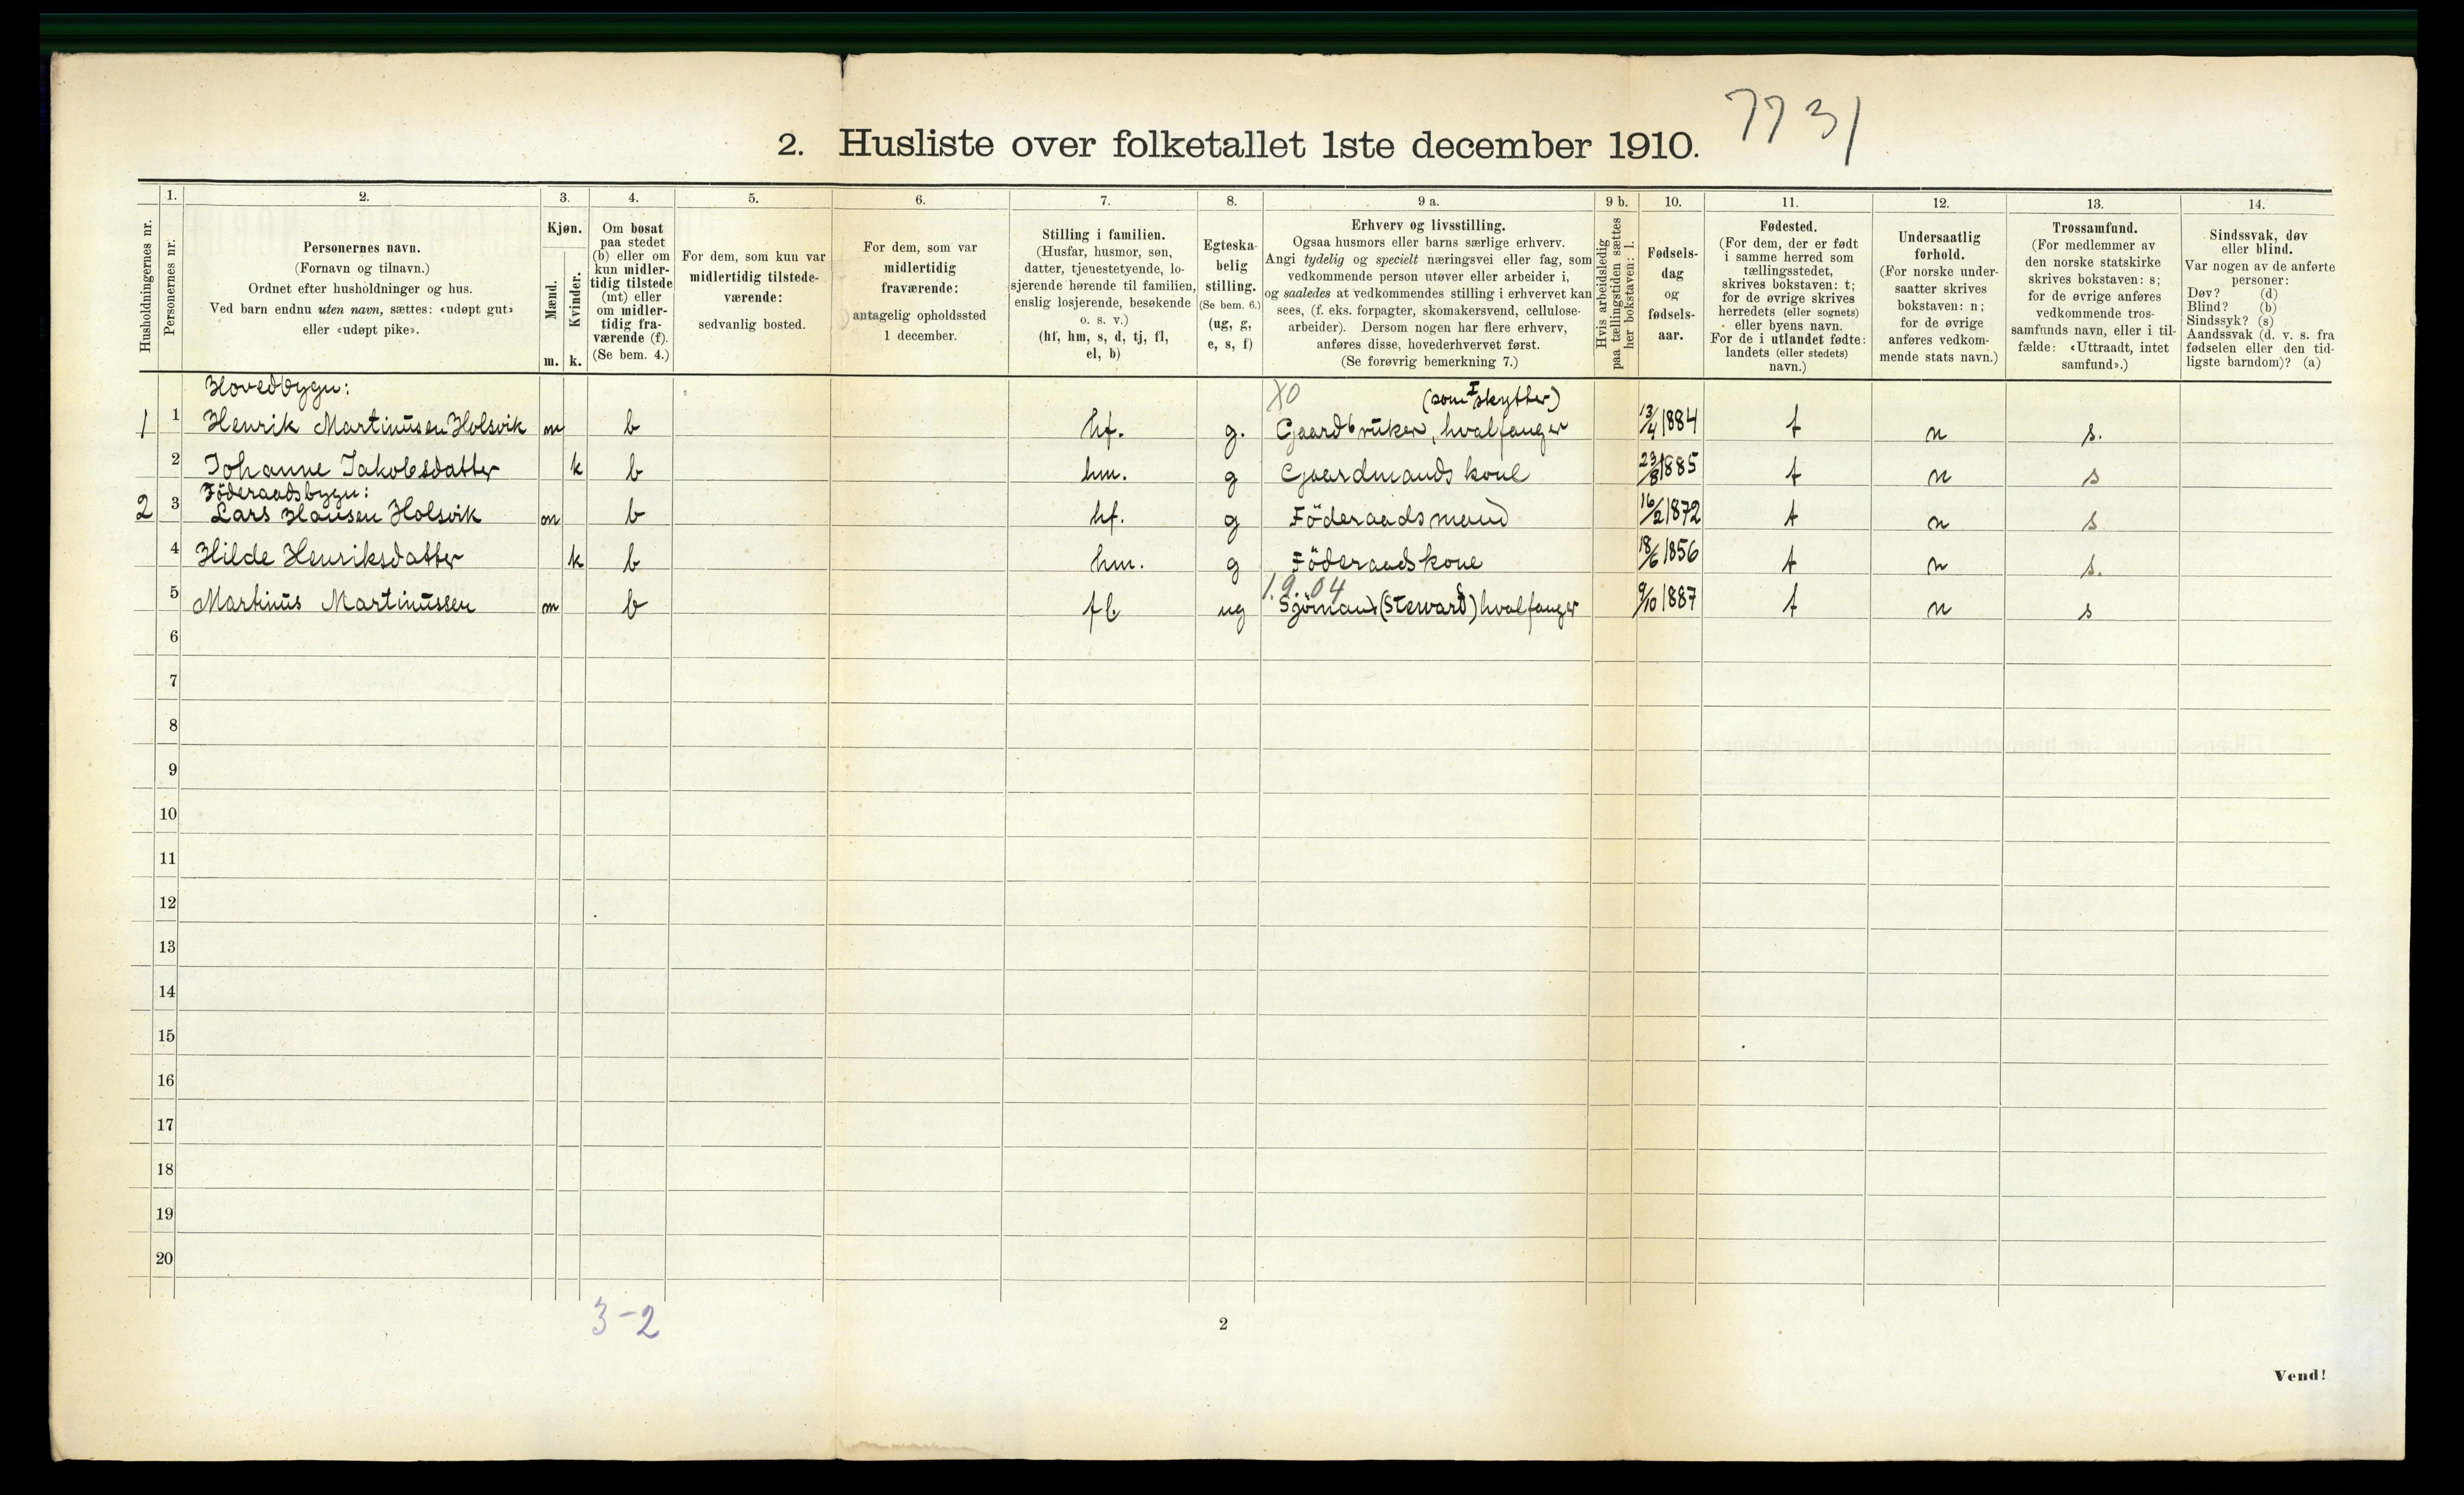 7731
2. Husliste over folketallet 1ste december 1910.
Husholdningernes nr.
1.
Personernes nr.
2.
Personernes navn.
(Fornavn og tilnavn.)
Ordnet efter husholdninger og hus.
Ved barn endnu uten navn, sættes: «udøpt gut»
eller «udøpt pike».
3.
Kjøn.
Mænd.
Kvinder.
m. k.
4.
Om bosat
paa stedet
(b) eller om
kun midler-
tidig tilstede
(mt) eller
om midler-
tidig fra-
værende (f).
(Se bem. 4.)
5.
For dem, som kun var
midlertidig tilstede-
værende:
sedvanlig bosted.
6.
For dem, som var
midlertidig
fraværende:
antagelig opholdssted
1 december.
7.
Stilling i familien.
(Husfar, husmor, søn,
datter, tjenestetyende, lo-
sjerende hørende til familien,
enslig losjerende, besøkende
o. s. v.)
(hf, hm, s, d, tj, fl,
el, b)
8.
Egteska-
belig
stilling.
(Se bem. 6.)
(ug, g,
e, s, f)
9 a.
Erhverv og livsstilling.
Ogsaa husmors eller barns særlige erhverv.
Angi tydelig og specielt næringsvei eller fag, som
vedkommende person utøver eller arbeider i,
og saaledes at vedkommendes stilling i erhvervet kan
sees, (f. eks. forpagter, skomakersvend, cellulose-
arbeider). Dersom nogen har flere erhverv,
anføres disse, hovederhvervet først.
(Se forøvrig bemerkning 7.)
9 b.
Hvis arbeidsledig
paa tællingstiden sættes
her bokstaven: l.
10.
Fødsels-
dag
og
fødsels-
aar.
11.
Fødested.
(For dem, der er født
i samme herred som
tællingsstedet,
skrives bokstaven: t;
for de øvrige skrives
herredets (eller sognets)
eller byens navn.
For de i utlandet fødte:
landets (eller stedets)
navn.)
12.
Undersaatlig
forhold.
(For norske under-
saatter skrives
bokstaven: n;
for de øvrige
anføres vedkom-
mende stats navn.)
13.
Trossamfund.
(For medlemmer av
den norske statskirke
skrives bokstaven: s;
for de øvrige anføres
vedkommende tros-
samfunds navn, eller i til-
fælde: «Uttraadt, intet
samfund».)
14.
Sindssvak, døv
eller blind.
Var nogen av de anførte
personer:
Døv? (d)
Blind? (b)
Sindssyk? (s)
Aandssvak (d. v. s. fra
fødselen eller den tid-
ligste barndom)? (a)
Hovedbygn:
X0 (som I skytter)
1 1 Henrik Martinusen Holsvik m b hf. g. Gaardbruker, hvalfanger 13/4 1884 t n s.
2 Johanne Jakobsdatter k b hm. g Gaardmands kone 23/8 1885 t n s
Föderaadsbygn:
2 3 Lars Hansen Holsvik m b hf. g Föderaadsmand 16/2 1872 t n s
4 Hilde Henriksdatter k b hm. g Föderaadskone 18/6 1856 t n s.
1.9.04
5 Martinus Martinussen m b fl ug Sjömand (Steward) hvalfanger 9/10 1887 t n s
6
7
8
9
10
11
12
13
14
15
16
17
18
19
20
3-2
2
Vend!